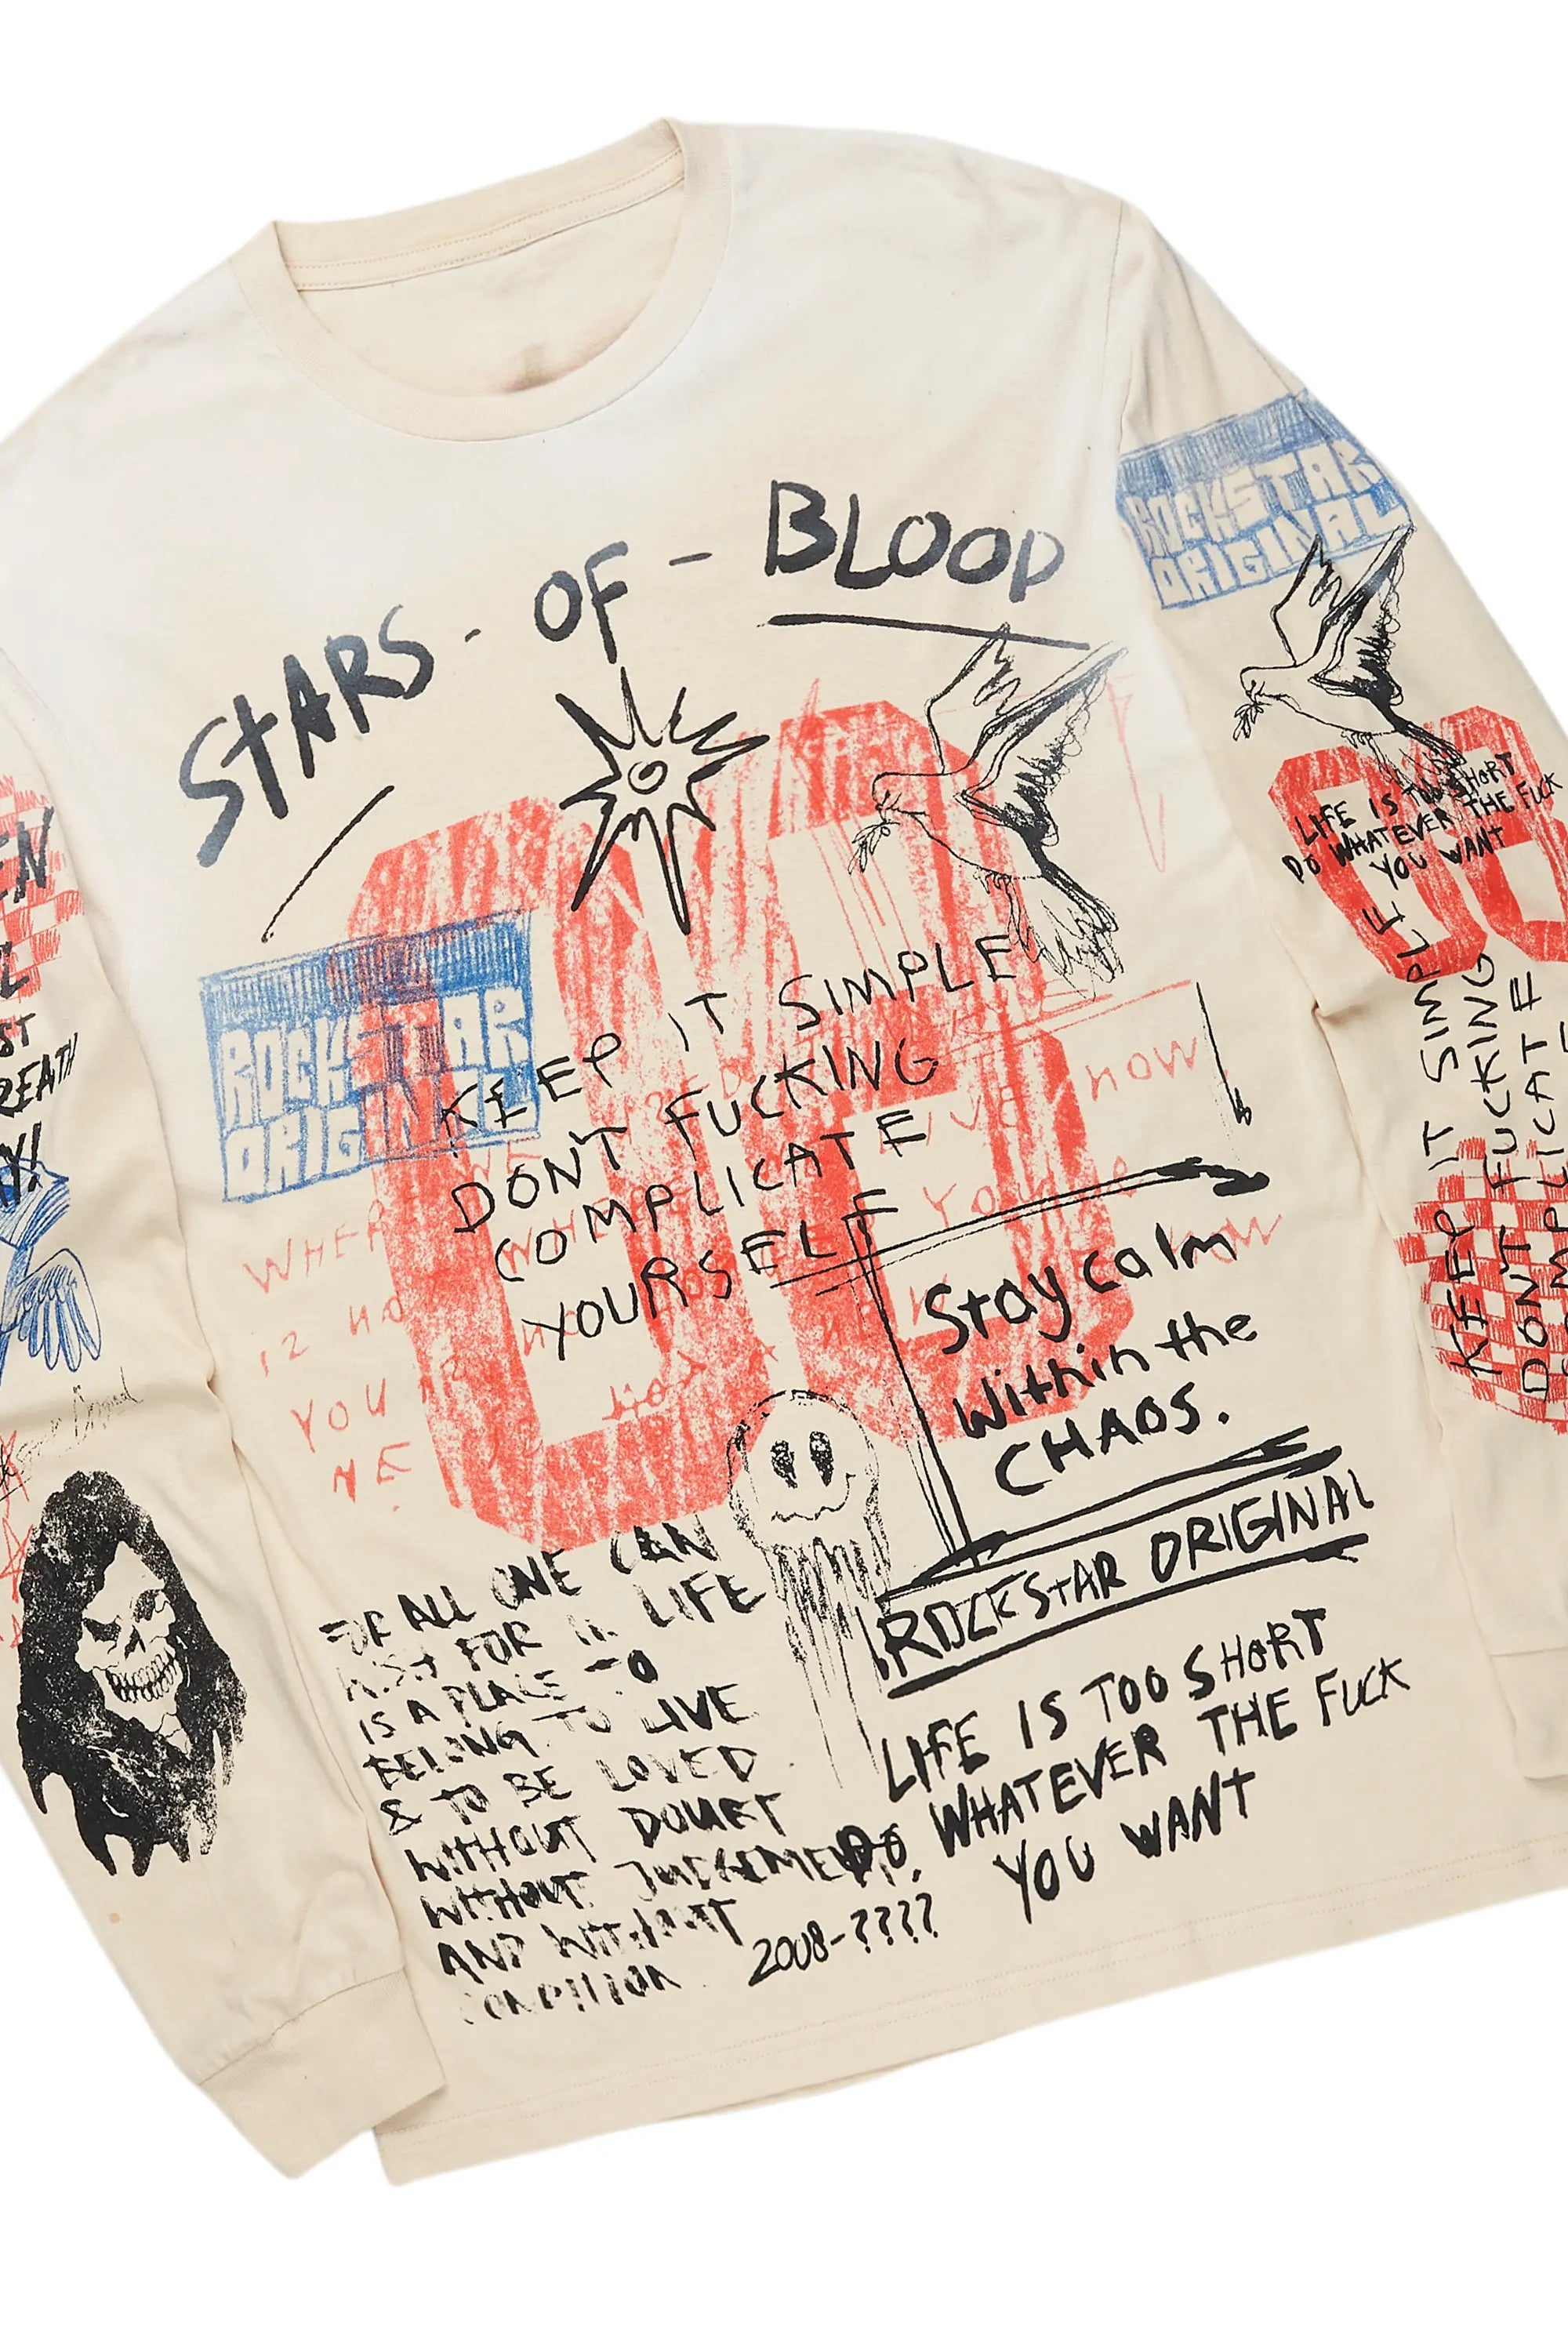 STARS - OF - BLOOD
ROCKSTAR
ORIGINAL
KEEP IT SIMPLE
DONT FUCKING
COMPLICATE
YOURSELF
NOW
WHER
YOU
Stay calm
within the
CHAOS.
ROCKSTAR ORIGINAL
LIFE IS TOO SHORT
DO WHATEVER THE FUCK
YOU WANT
FOR ALL ONE CAN
ASK FOR IN LIFE
IS A PLACE TO
BELONG TO LIVE
& TO BE LOVED
WITHOUT DOUBT
WITHOUT JUDGEMENT,
AND WITHOUT
CONDITION
2008-????
ROCKSTAR
ORIGINAL
LIFE IS TOO SHORT
DO WHATEVER THE FUCK
YOU WANT
KEEP IT SIMPLE
DONT FUCKING
COMPLICATE
EN
ST
REATH
Y!